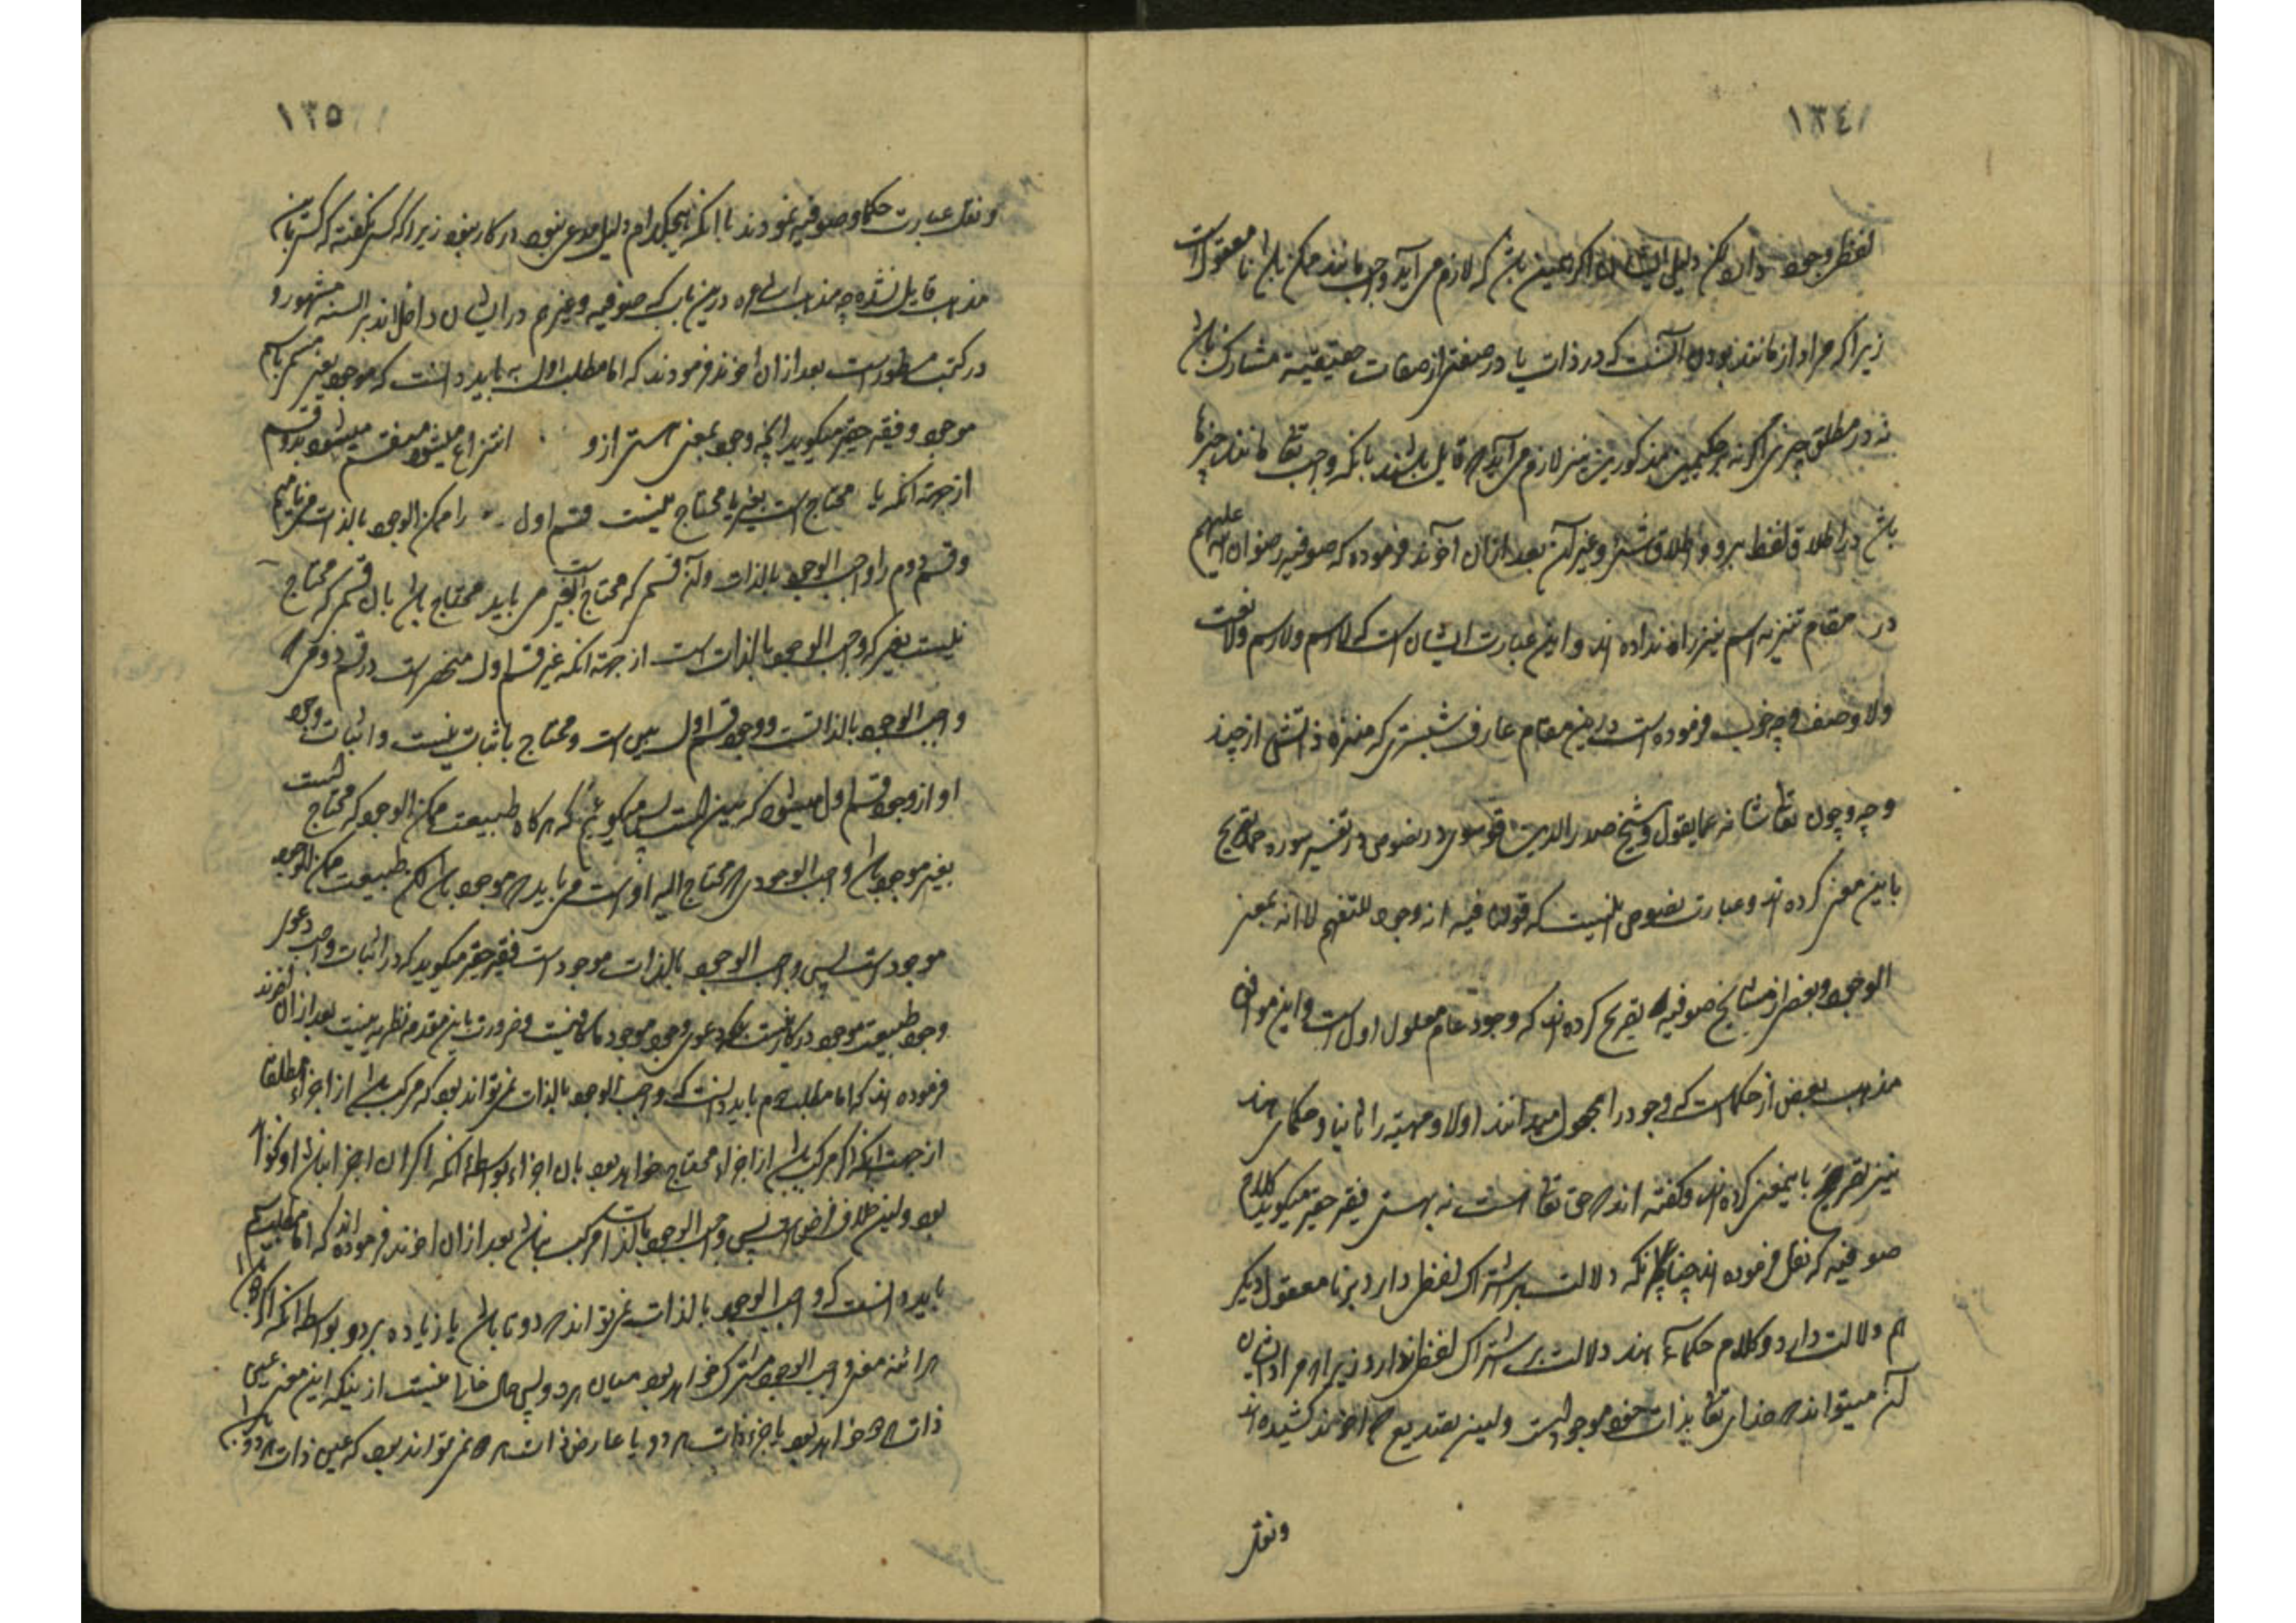 ١٣٤
لفظ وجود دال لکن دلیل ایشان اگر همین باشد که لازم می آید واجب مانند ممکن باشد نامعقول است
زیرا که مراد از مانند بودن آنست که در ذات یا در صفتی از صفات حقیقیه مشارک باشد
نه در مطلق چیزی اگر نه بر حکیمین مذکورین نیز لازم می آید که قایل باشند بانکه واجب تعالی مانند چیزها
باشد در اطلاق لفظ برو و اطلاق شئ و غیر آن بعد از ان آخوند فرموده که صوفیه رضوان الله علیهم
در مقام تنزیه اسم نیز راه نداده اند و این عبارت ایشان است که لا اسم ولا رسم ولا نعت
ولا وصف و چه خوب فرموده است درین مقام عارف شبستری که منزه ذاتش از چند
و چه و چون تعالی شانه عما یقول و شیخ صدر الدین قونوی در نصوص و در تفسیر سوره حمد تصریح
باین معنی کرده اند و عبارت نصوص اینست که قولنا فیه انه وجود للتفهم لا انه بمعنی
الوجود و بعضی از مشایخ صوفیه تصریح کرده اند که وجود عام معلول اول است و این موافق
مذهب بعض از حکماست که وجود را مجعول میدانند اولا و مهیه را ثانیا و حکمای هند
نیز تصریح باینمعنی کرده اند و گفته اند که حق تعالی هست نه بهستی فقیر حقیر میگوید کلام
صوفیه که نقل فرموده اند چنانکه دلالت بر اشتراک لفظی دارد بر نامعقول دیگر
هم دلالت دارد و کلام حکمآء هند دلالت بر اشتراک لفظی ندارد زیرا که مراد ایشان
آن میتواند که خدای تعالی بذات خود موجود است و لیس تصدیع که اخوند کشیده اند
و نقل
١٣٥
و نقل عبارت حکما و صوفیه نمودند با آنکه هیچکدام دلیل مدعی نبود در کار نبود زیرا که کسی نگفته که کسی باین
مذهب قایل نشده چه مذهب اشاعره درین باب که صوفیه و غیرهم در ایشان داخل اند بر السنه مشهور و
در کتب مسطور است بعد از ان اخوند فرمودند که اما مطلب اول به باید دانست که موجود یعنی مسمی باسم
موجود و فقیر حقیر میگوید انچه وجود بمعنی هستی از و انتزاع میشود منقسم میشود بدو قسم
از جهة انکه یا محتاج است بغیر یا محتاج نیست قسم اول را ممکن الوجود بالذات می نامیم
و قسم دوم را واجب الوجود بالذات و آن قسم که محتاج است بغیر می باید محتاج باشد بان قسم که محتاج
نیست بغیر که واجب الوجود بالذات است از جهة انکه غیر قسم اول منحصر است در قسم دوم که
واجب الوجود بالذاتست و وجود قسم اول بین است و محتاج باثبات نیست و اثبات وجود
او از وجود قسم اول میشود که بین است پس میگوئیم که هرگاه طبیعت ممکن الوجود که محتاج است
بغیر موجود باشد واجب الوجودی که محتاج الیه اوست می باید که موجود باشد لکن طبیعت ممکن الوجود
موجود است پس واجب الوجود بالذات موجود است فقیر حقیر میگوید که در اثبات واجب دعوی
وجود طبیعت موجود درکار نیست بلکه دعوی وجود موجود ما کافیست و ضرورت باین مقدمه نظریه نیست بعد از ان اخوند
فرموده اند که اما مطلب دوم باید دانست که واجب الوجود بالذات نمی تواند بود که مرکب باشد از اجزاء مطلقا
از جهت انکه اگر مرکب باشد از اجزاء محتاج خواهد بود بان اجزاء بواسطه انکه اگر ان اجزا نباشد او نخواهد
بود و این خلاف فرض است پس واجب الوجود بالذات مرکب نباشد بعد از ان اخوند فرموده اند که اما مطلب سیم
باید دانست که واجب الوجود بالذات نمی تواند که دو تا باشد یا زیاده بر دو بواسطه انکه اگر دو تا باشد
هرآئنه معنی واجب الوجود مشترک خواهد بود میان هر دو پس حال خالی نیست از اینکه این معنی عین
ذات هر دو خواهد بود یا جزء ذات هر دو یا عارض ذات هر دو نمی تواند بود که عین ذات هر دو باشد